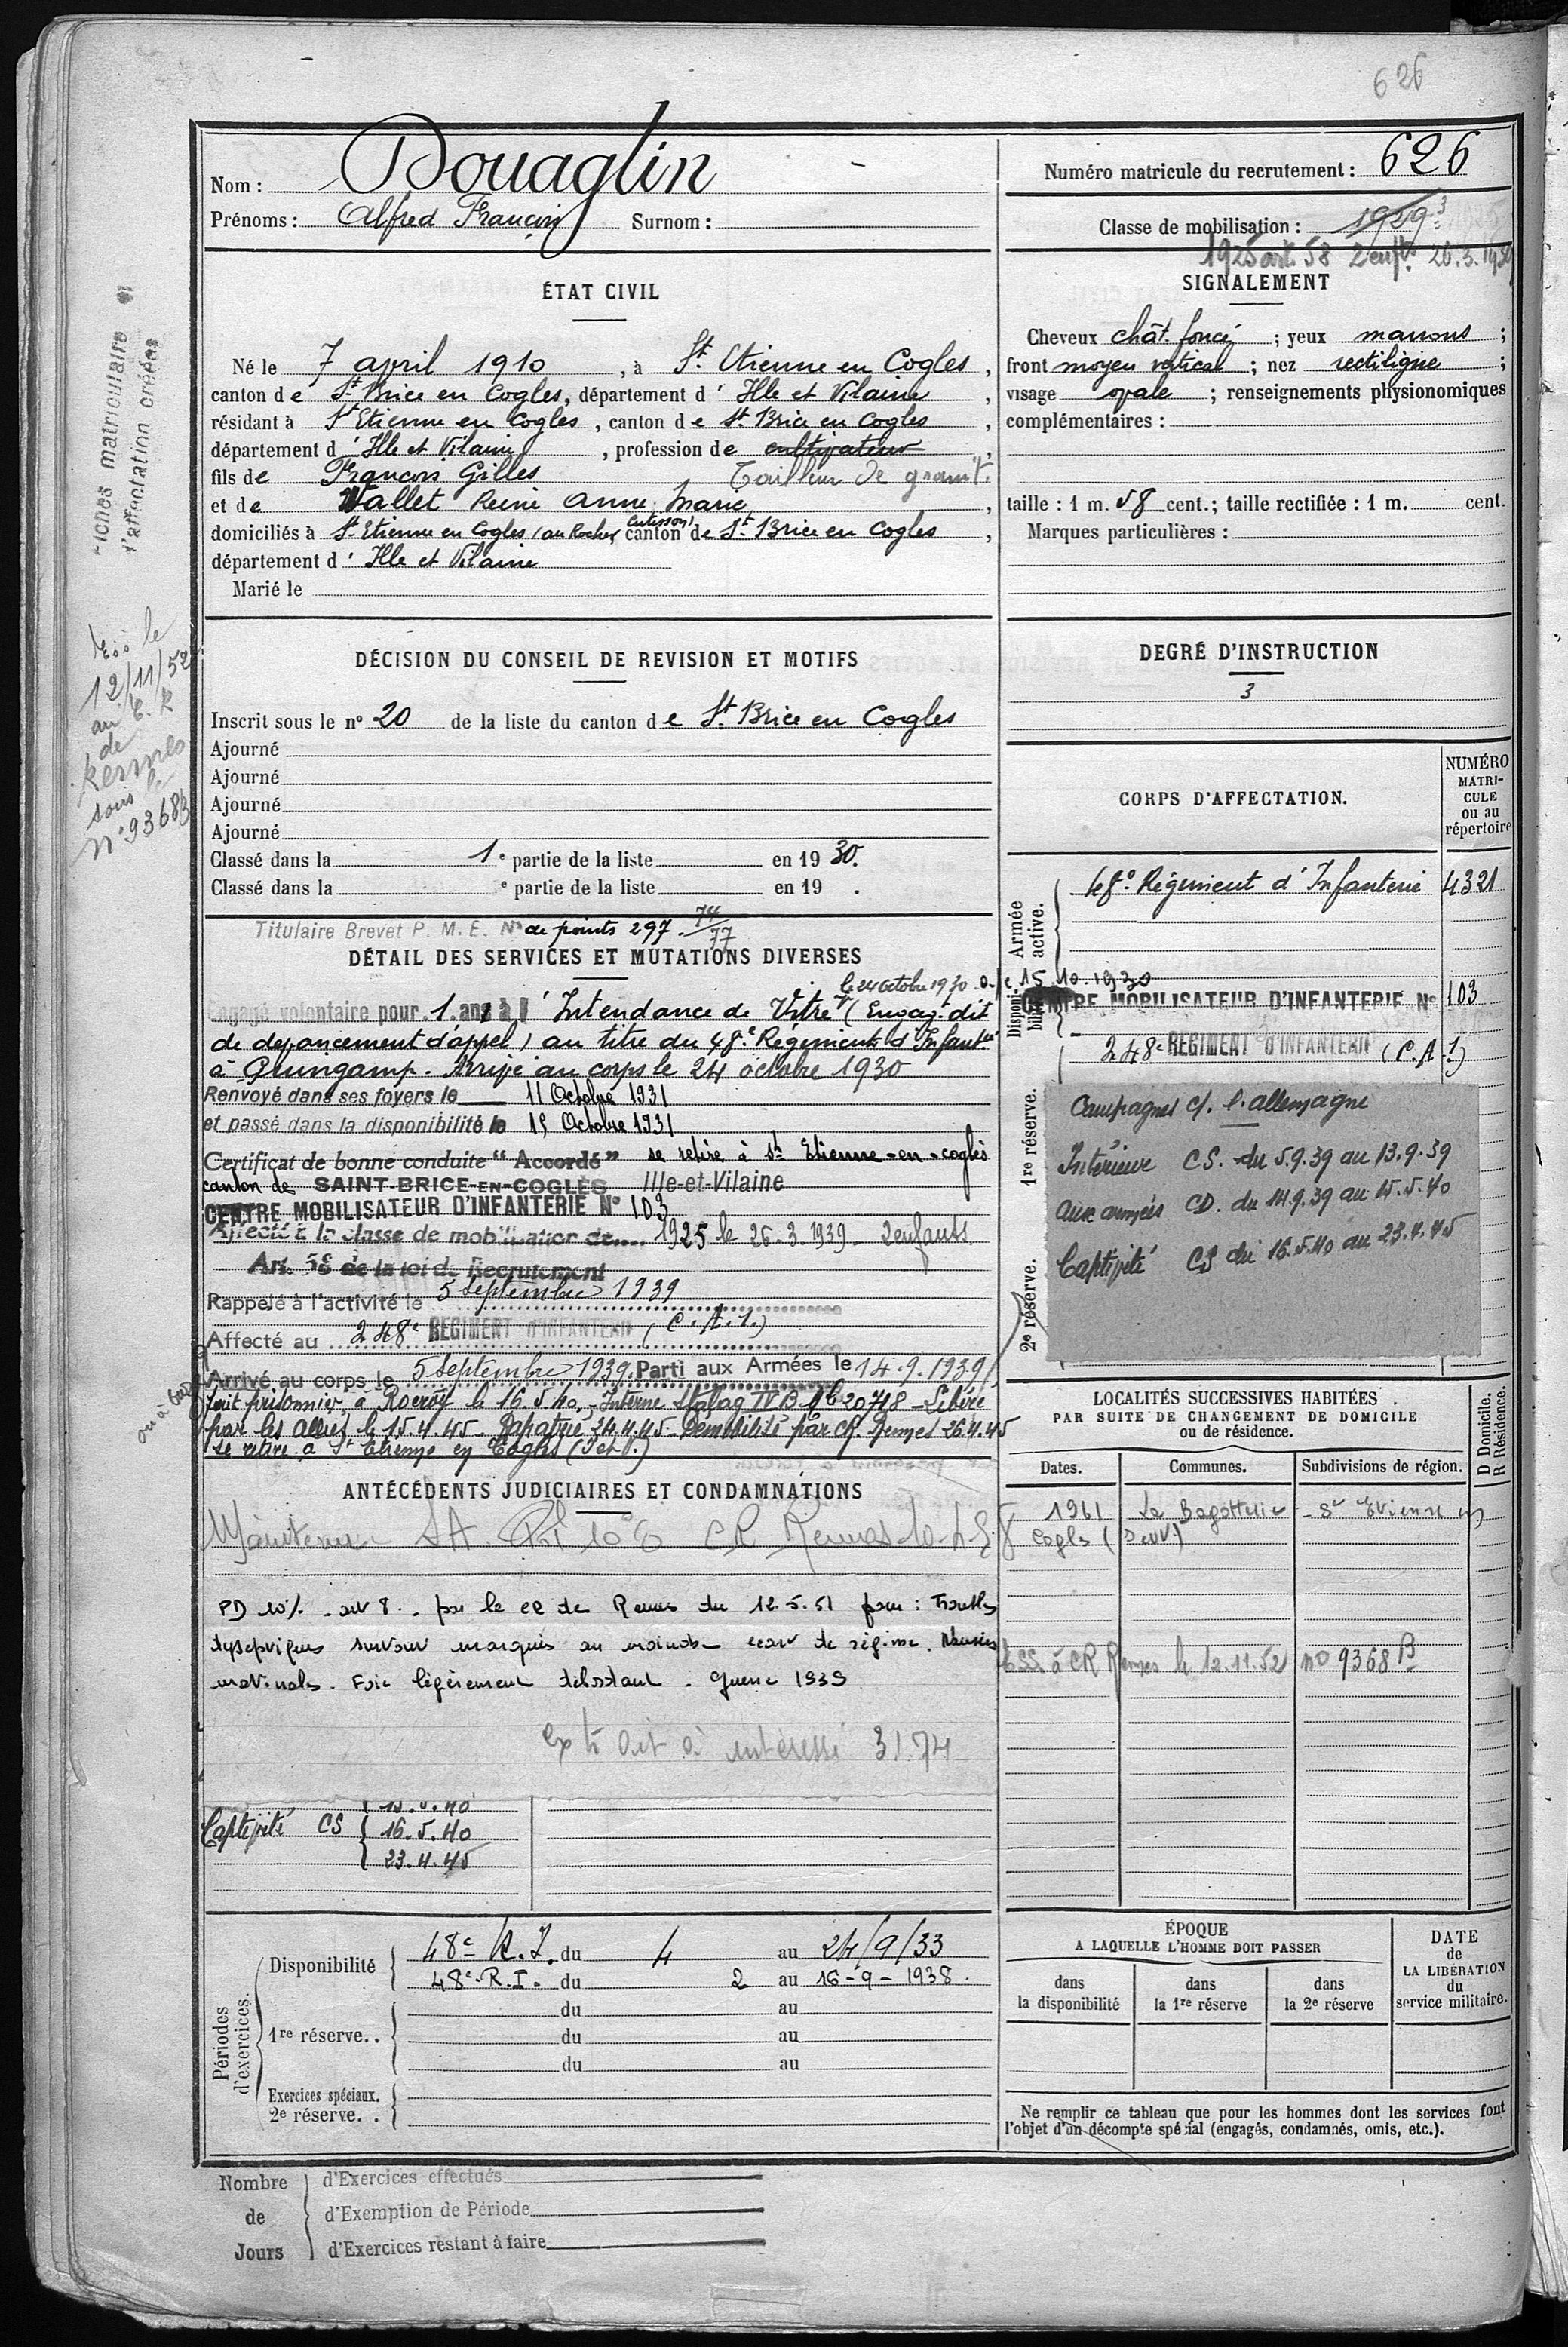 626
Nom : Douaglin
Prénoms : Alfred Francis Surnom :
Numéro matricule du recrutement : 626
Classe de mobilisation : 1929
1925 art. 58 2 enfts 26.3.1939
ÉTAT CIVIL
Né le 7 april 1910, à St Etienne en Cogles,
canton de St Brice en Cogles, département d'Ille et Vilaine,
résidant à St Etienne en Cogles, canton de St Brice en Cogles,
département d'Ille et Vilaine, profession de cultivateur,
fils de François Gilles Tailleur de granit.
et de Vallet Reine Anne Marie,
domiciliés à St Etienne en Cogles (au Rocher Cutesson) canton de St Brice en Cogles,
département d'Ille et Vilaine
Marié le
SIGNALEMENT
Cheveux chât. foncé ; yeux marrons ;
front moyen vertical ; nez rectiligne ;
visage ovale ; renseignements physionomiques
complémentaires :
taille : 1 m. 58 cent. ; taille rectifiée : 1 m. cent.
Marques particulières :
Fiches matriculaire et
d'affectation créées
le
12/11/52
au C. R
de
Rennes
sous le
n° 9368B
DÉCISION DU CONSEIL DE REVISION ET MOTIFS
Inscrit sous le n° 20 de la liste du canton de St Brice en Cogles
Ajourné
Ajourné
Ajourné
Ajourné
Classé dans la 1e partie de la liste en 1930.
Classé dans la e partie de la liste en 19 .
DEGRÉ D'INSTRUCTION
3
CORPS D'AFFECTATION.
NUMÉRO
MATRI-
CULE
ou au
répertoire
Armée active.
48e Régiment d'Infanterie 4321
Disponibilité
CENTRE MOBILISATEUR D'INFANTERIE N° 103
248e REGIMENT D'INFANTERIE (C.A.1)
1re réserve.
2e réserve.
Campagnes c/. l'allemagne
Intérieur CS. du 5.9.39 au 13.9.39
aux armées CD. du 14.9.39 au 15.5.40
Captivité CS du 16.5.40 au 23.4.45
Titulaire Brevet P. M. E. N° de points 297. 74/77
DÉTAIL DES SERVICES ET MUTATIONS DIVERSES
le 24 octobre 1930 15.10.1930
Engagé volontaire pour 1 ans à l'Intendance de Vitré (Engag. dit
de devancement d'appel) au titre du 48e Régiment d'Infantie
à Guingamp. Arrivé au corps le 24 octobre 1930
Renvoyé dans ses foyers le 11 Octobre 1931
et passé dans la disponibilité le 15 Octobre 1931
Certificat de bonne conduite "Accordé" se retire à St Etienne-en-coglès
canton de SAINT-BRICE-EN-COGLÈS Ille-et-Vilaine
CENTRE MOBILISATEUR D'INFANTERIE N° 103
Affecté à la classe de mobilisation de 1925 le 26-3-1939 - 2 enfants
Art. 58 de la loi de Recrutement
Rappelé à l'activité le 5 septembre 1939
Affecté au 248e REGIMENT D'INFANTERIE (C.A.1.)
Arrivé au corps le 5 septembre 1939. Parti aux Armées le 14.9.1939
fait prisonnier à Rocroy le 16.5.40. - Interné Stalag IV B No 20748 - Libéré
par les alliés le 15.4.45 - Rapatrié 24.4.45 - Démobilisé par CR. Rennes 26.4.45
se retire à St Etienne en Cogles (I et V.)
ANTÉCÉDENTS JUDICIAIRES ET CONDAMNATIONS
CR Rennes
PD 10% par le CR de Rennes du 12.5.51 pour : Troubles
dyspeptiques survenant marqués au moindre écart de régime. Nausées
matinales. Foie légèrement débordant. Guerre 1939
extrait à intéressé 3/74
Captivité CS
15.5.40
16.5.40
23.4.45
LOCALITÉS SUCCESSIVES HABITÉES
PAR SUITE DE CHANGEMENT DE DOMICILE
ou de résidence.
Dates. Communes. Subdivisions de région.
D Domicile.
R Résidence.
1961 La Bagotterie - St Etienne en
Cogles (I et V)
à CR Rennes le 12.11.52 no 9368 B
Périodes d'exercices.
Disponibilité
48e R.I. du 4 au 24/9/33
48e R.I. du 2 au 16-9-1938.
1re réserve..
du au
du au
du au
Exercices spéciaux.
2e réserve. .
ÉPOQUE
A LAQUELLE L'HOMME DOIT PASSER
dans
la disponibilité
dans
la 1re réserve
dans
la 2e réserve
DATE
de
LA LIBÉRATION
du
service militaire.
Ne remplir ce tableau que pour les hommes dont les services font
l'objet d'un décompte spécial (engagés, condamnés, omis, etc.).
Nombre
de
Jours
d'Exercices effectués
d'Exemption de Période
d'Exercices restant à faire